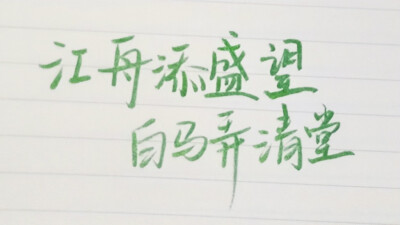 江舟添盛望
白马弄清堂